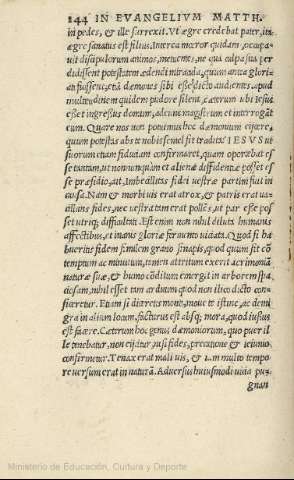 144 IN EVANGELIVM MATTH.
in pedes, & ille surrexit. Vt ægre credebat pater, ita
ægre sanatus est filius. Interea mœror quidam, occupa
uit discipulorum animos, metuentes, ne qui culpa sua per
didissent potestatem ædendi miracula, quum antea gloria
ti fuissent, etiã dæmones sibi esse dicto audientes. apud
multitudinem quidem pudore silent, cæterum ubi Iesus
esset ingressus domum, adeunt magistrum et interrogant
eum. Quare nos non potuimus hoc dæmonium eijcere,
quum potestas abs te nobis semel sit tradita? IESVS ut
suorum etiam fiduciam confirmaret, quam operabat es
se totum, ut nonnunquam et aliena diffidentia posset es
se præsidio, ait. Imbecillitas fidei uestræ partim fuit in
causa. Nam & morbi uis erat atrox, & patris erat ua
cillans fides, nec uestra tum erat pollens, ut par esse pos
set utriq; difficultati. Est enim non nihil diluta humanis
affectibus, et inanis gloriæ fermento uiciata. Quod si ha
bueritis fidem similem grano sinapis, quod quum sit cõ
temptum ac minutum, tamen attritum exerit acrimoniã
naturæ suæ, & humo cõditum emergit in arborem spa
ciosam, nihil esset tam arduum quod non ilico dicto con
ficeretur. Etiam si dixeretis monti, moue te istinc, ac demi
gra in alium locum, facturus est absq; mora, quod iussus
est facere. Cæterum hoc genus dæmoniorum, quo puer il
le tenebatur, non eijcitur nisi fides, precatione & ieiunio
confirmetur. Tenax erat mali uis, & iam multo tempo
re uersum erat in naturã. Aduersus huiusmodi uitia pug
gnan
Ministerio de Educación, Cultura y Deporte